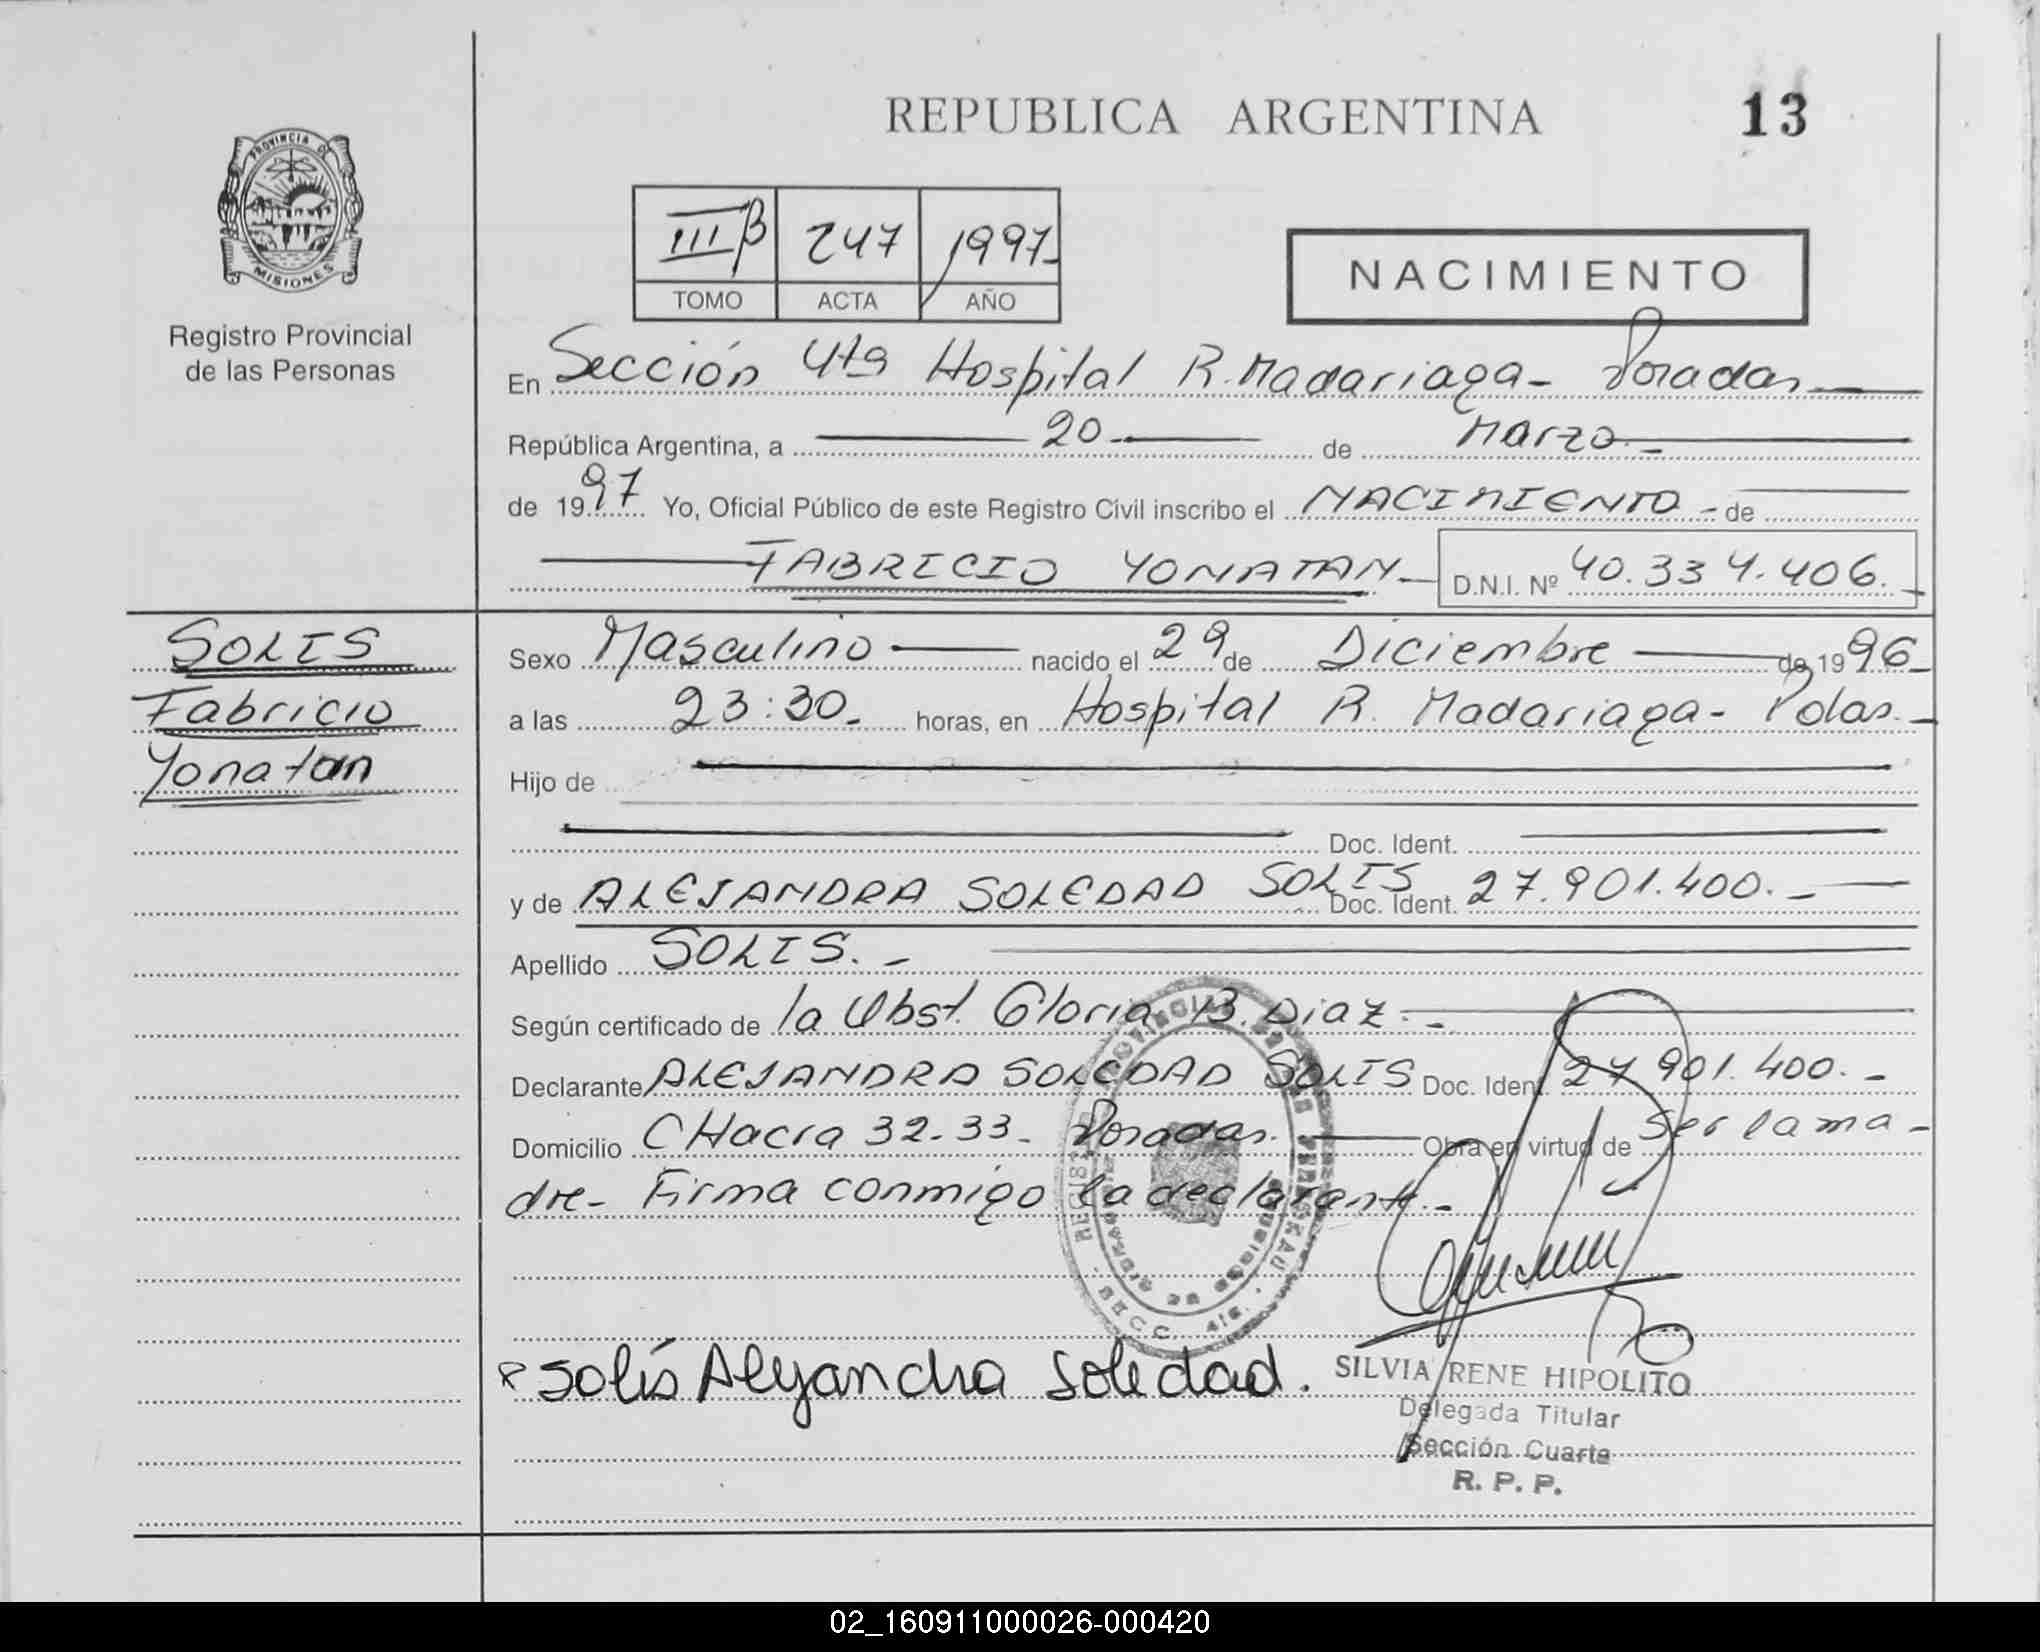 REPUBLICA ARGENTINA 13
PROVINCIA DE
MISIONES
Registro Provincial
de las Personas
III B 247 1997
TOMO ACTA AÑO
NACIMIENTO
En Sección 4ta Hospital R. Madariaga - Posadas
República Argentina, a 20 de Marzo
de 1997 Yo, Oficial Público de este Registro Civil inscribo el NACIMIENTO - de
FABRICIO YONATAN - D.N.I. Nº 40.334.406.
SOLIS
Fabricio
Yonatan
Sexo Masculino nacido el 29 de Diciembre de 1996
a las 23:30. horas, en Hospital R. Madariaga - Pdas.
Hijo de
Doc. Ident.
y de ALEJANDRA SOLEDAD SOLIS Doc. Ident. 27.901.400. -
Apellido SOLIS. -
Según certificado de la Obst. Gloria B. Diaz. -
Declarante ALEJANDRA SOLEDAD SOLIS Doc. Ident. 27 901.400. -
Domicilio CHacra 32-33. Posadas. Obra en virtud de Ser la ma -
dre - Firma conmigo la declarante. -
Solís Alejandra Soledad.
SILVIA RENE HIPOLITO
Delegada Titular
Sección Cuarta
R. P. P.
02_160911000026-000420